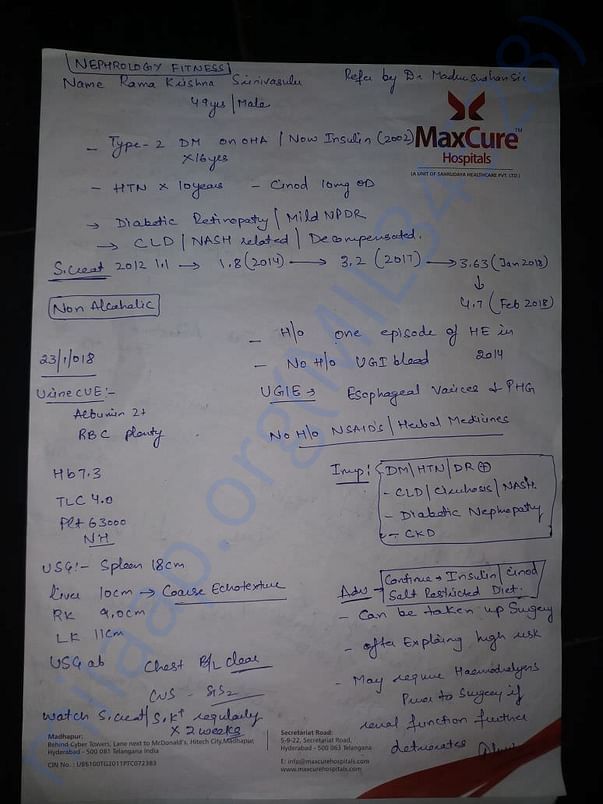 NEPHROLOGY FITNESS
Name Rama Krishna Srinivasulu Refer by Dr Madhusudhan Sir
49 yrs | Male
MaxCure™
Hospitals
(A UNIT OF SAHRUDAYA HEALTHCARE PVT. LTD.)
- Type-2 DM on OHA | Now Insulin (2002)
x 16 yrs
- HTN x 10 years - Cinod 10mg OD
→ Diabetic Retinopaty | Mild NPDR
→ CLD | NASH related | Decompensated.
S.creat 2012 1.1 → 1.8 (2014) → 3.2 (2017) → 3.63 (Jan 2018)
↓
4.7 (Feb 2018)
Non Alcaholic
- H/o one episode of HE in
2014
- No H/o UGI bleed
23/1/018
UGIE → Esophageal Varices + PHG
Urine CUE:-
Albumin 2+
RBC plenty
No H/o NSAID's | Herbal Medicines
Hb 7.3
TLC 4.0
Plt 63000
NH
Imp: DM | HTN | DR ⊕
- CLD | Cirrhosis | NASH.
- Diabetic Nephropaty
- CKD
USG:- Spleen 18cm
Liver 10cm → Coarse Echotexture
RK 9.0cm
LK 11cm
USG ab
Chest B/L clear
CVS - S1S2
Watch S.creat | S.K+ regularly
x 2 weeks
Adv → Continue → Insulin | Cinod
Salt Restricted Diet.
- Can be taken up Surgery
- after Explaing high risk
- May require Haemodialysis
Prior to Surgery if
renal function further
deteriorates
Madhapur:
Behind Cyber Towers, Lane next to McDonald's, Hitech City, Madhapur,
Hyderabad - 500 081 Telangana India
CIN No.: U85100TG2011PTC072383
Secretariat Road:
5-9-22, Secretariat Road,
Hyderabad - 500 063 Telangana
E: info@maxcurehospitals.com
www.maxcurehospitals.com